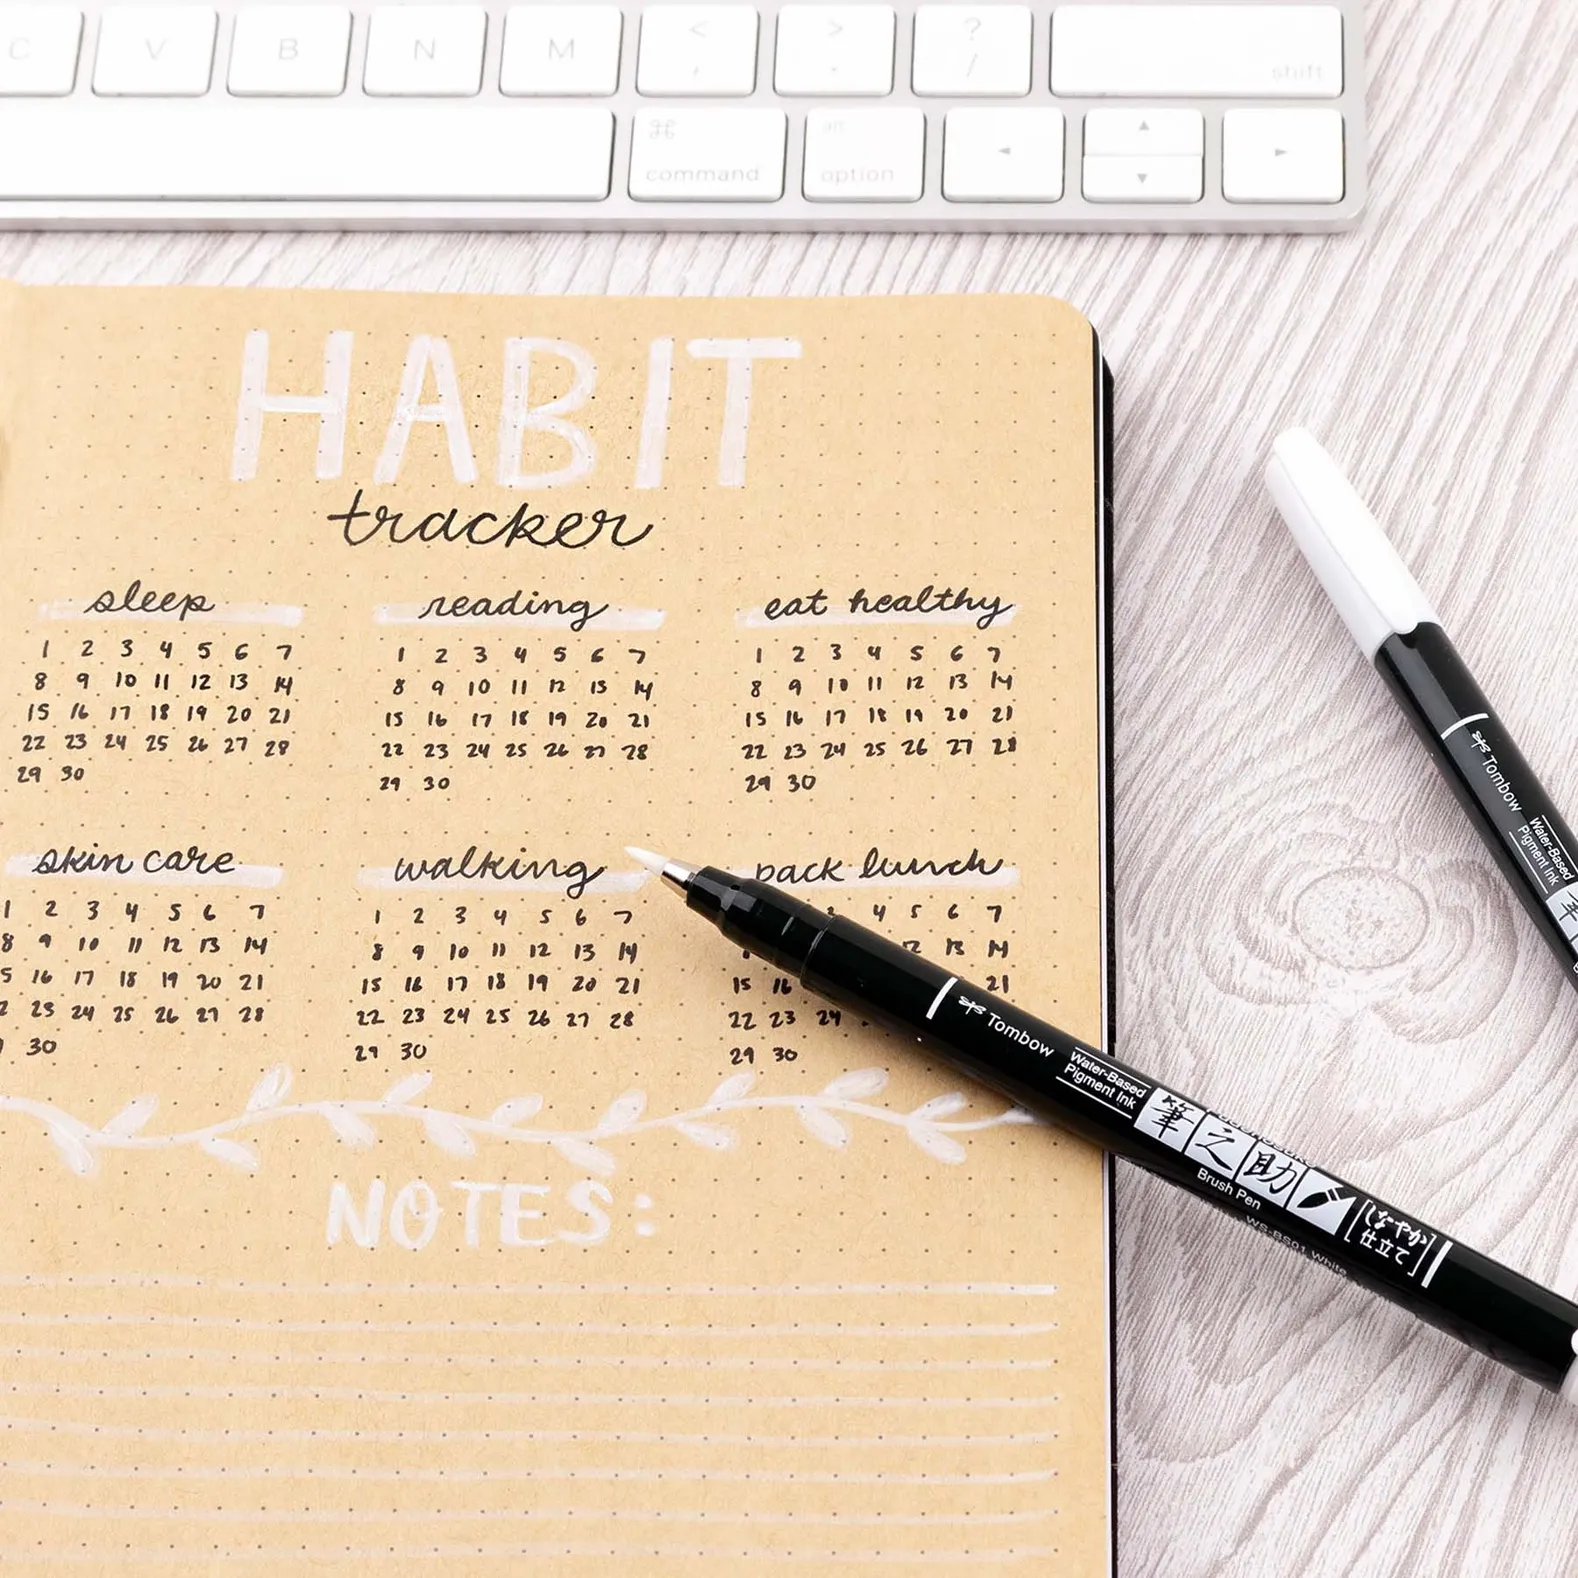 C V B N M < , > . ? / shift
⌘ command alt option ◄ ▲ ▼ ►
HABIT
tracker
sleep
1 2 3 4 5 6 7
8 9 10 11 12 13 14
15 16 17 18 19 20 21
22 23 24 25 26 27 28
29 30
reading
1 2 3 4 5 6 7
8 9 10 11 12 13 14
15 16 17 18 19 20 21
22 23 24 25 26 27 28
29 30
eat healthy
1 2 3 4 5 6 7
8 9 10 11 12 13 14
15 16 17 18 19 20 21
22 23 24 25 26 27 28
29 30
skin care
1 2 3 4 5 6 7
8 9 10 11 12 13 14
5 16 17 18 19 20 21
2 23 24 25 26 27 28
30
walking
1 2 3 4 5 6 7
8 9 10 11 12 13 14
15 16 17 18 19 20 21
22 23 24 25 26 27 28
29 30
pack lunch
3 4 5 6 7
13 14
15 16 21
22 23 24
29 30
NOTES:
Tombow
Water-Based
Pigment Ink
筆之助
Brush Pen
WS-BS01 White
しなやか
仕立て
Tombow
Water-Based
Pigment Ink
筆